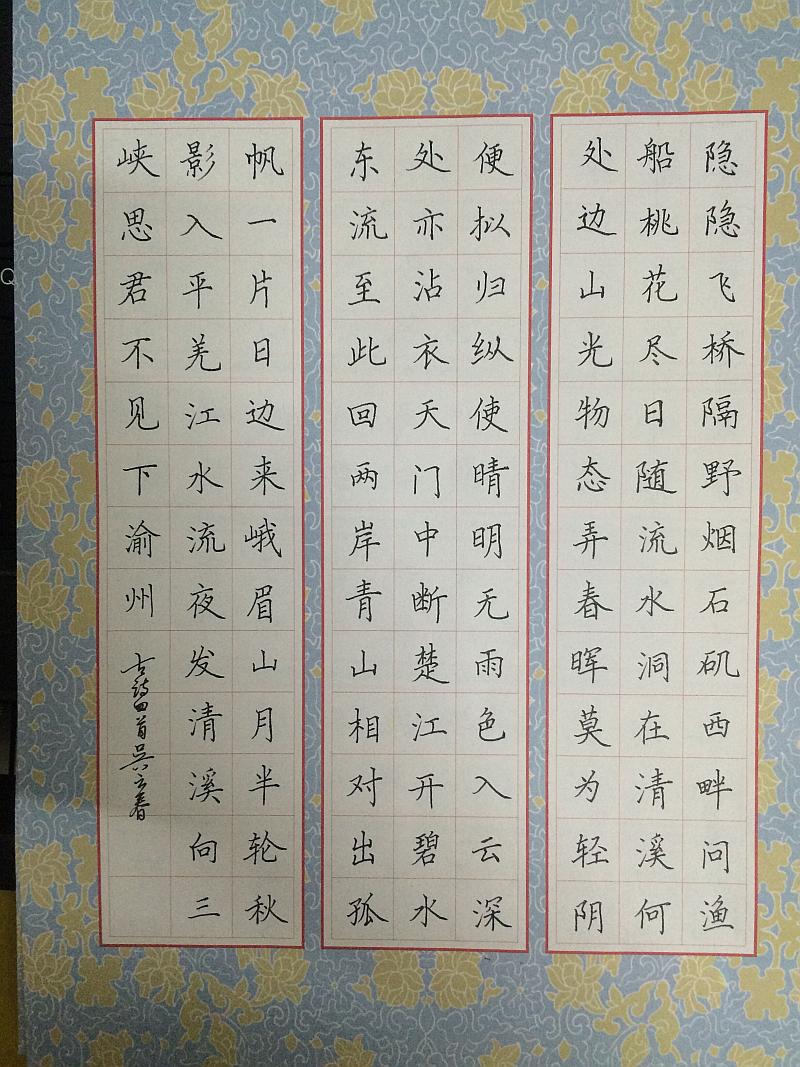 隐隐飞桥隔野烟石矶西畔问渔
船桃花尽日随流水洞在清溪何
处边山光物态弄春晖莫为轻阴
便拟归纵使晴明无雨色入云深
处亦沾衣天门中断楚江开碧水
东流至此回两岸青山相对出孤
帆一片日边来峨眉山月半轮秋
影入平羌江水流夜发清溪向三
峡思君不见下渝州
古诗四首吴云春